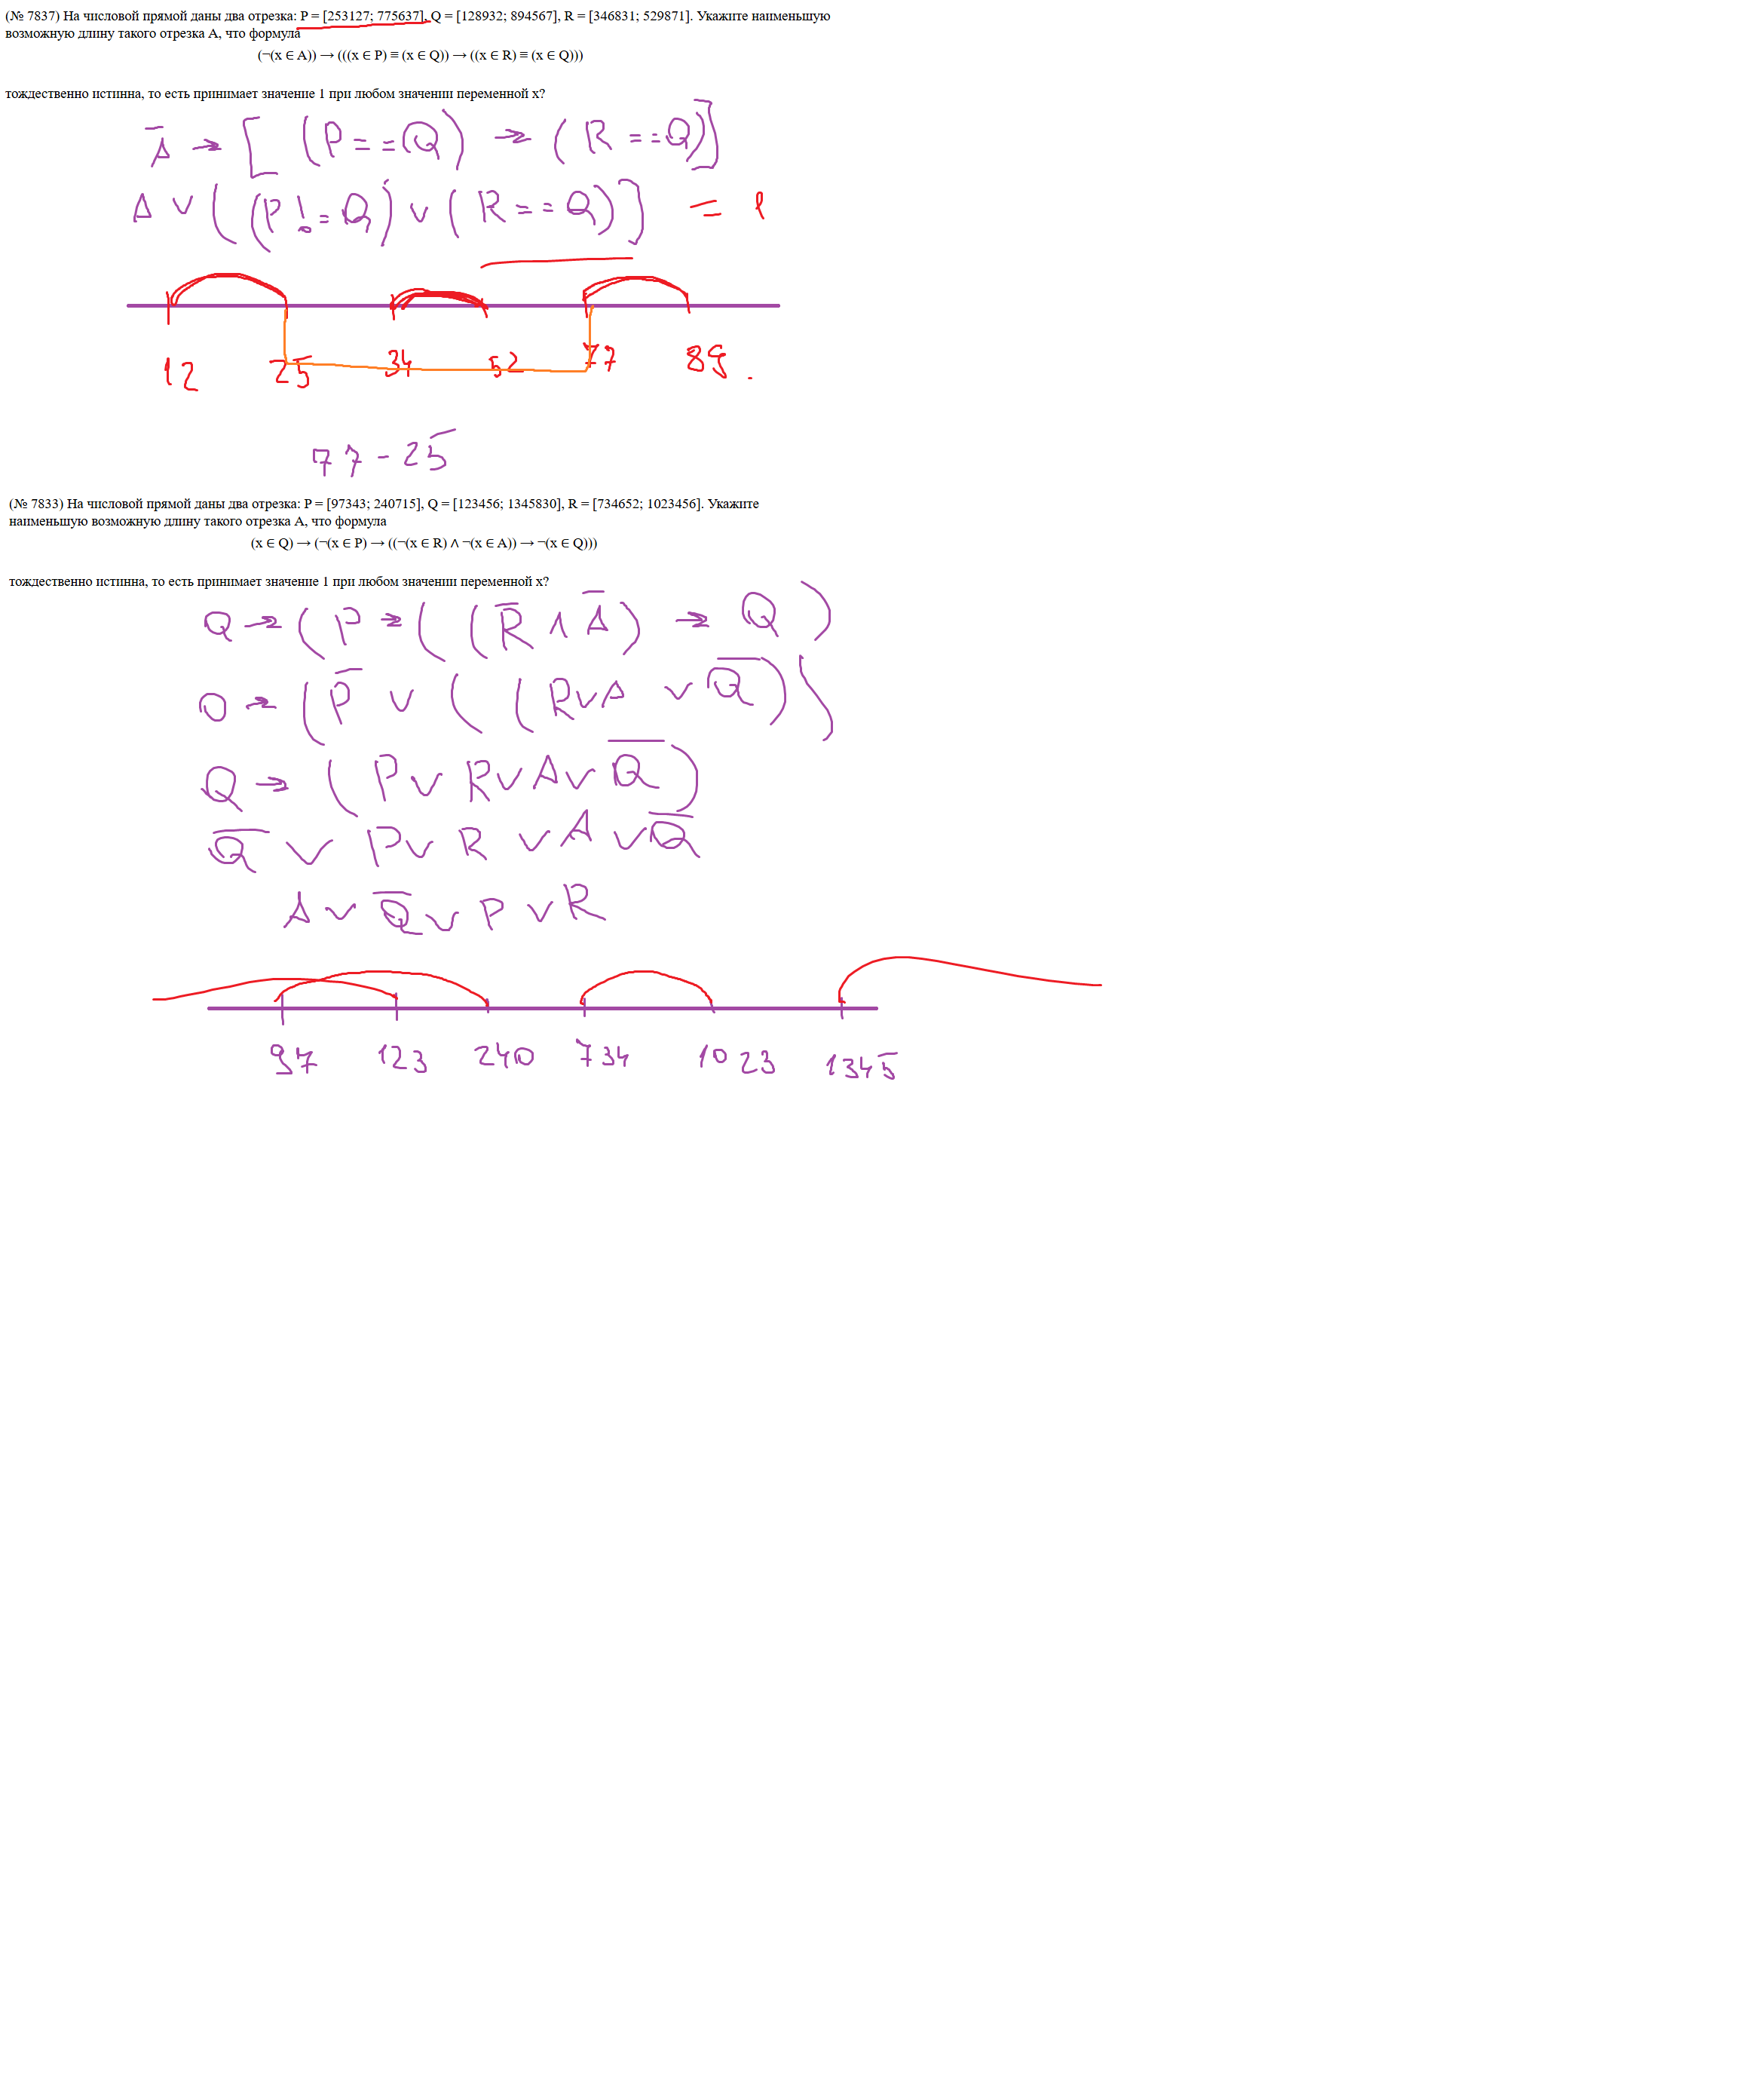 (№ 7837) На числовой прямой даны два отрезка: P = [253127; 775637], Q = [128932; 894567], R = [346831; 529871]. Укажите наименьшую
возможную длину такого отрезка A, что формула
(¬(x ∈ A)) → (((x ∈ P) ≡ (x ∈ Q)) → ((x ∈ R) ≡ (x ∈ Q)))
тождественно истинна, то есть принимает значение 1 при любом значении переменной х?
A̅ → [ (P == Q) → ( R == Q)]
A ∨ ( (P != Q) ∨ ( R == Q) ] = 1
12 25 34 52 77 89 .
77 - 25
(№ 7833) На числовой прямой даны два отрезка: P = [97343; 240715], Q = [123456; 1345830], R = [734652; 1023456]. Укажите
наименьшую возможную длину такого отрезка A, что формула
(x ∈ Q) → (¬(x ∈ P) → ((¬(x ∈ R) ∧ ¬(x ∈ A)) → ¬(x ∈ Q)))
тождественно истинна, то есть принимает значение 1 при любом значении переменной х?
Q → ( P → ( ( R̅ ∧ A̅ ) → Q )
O → ( P̅ ∨ ( ( R ∨ A ∨ Q̅ ) )
Q → ( P ∨ R ∨ A ∨ Q̅ )
Q̅ ∨ P ∨ R ∨ A ∨ Q̅
A ∨ Q̅ ∨ P ∨ R
97 123 240 734 1023 1345